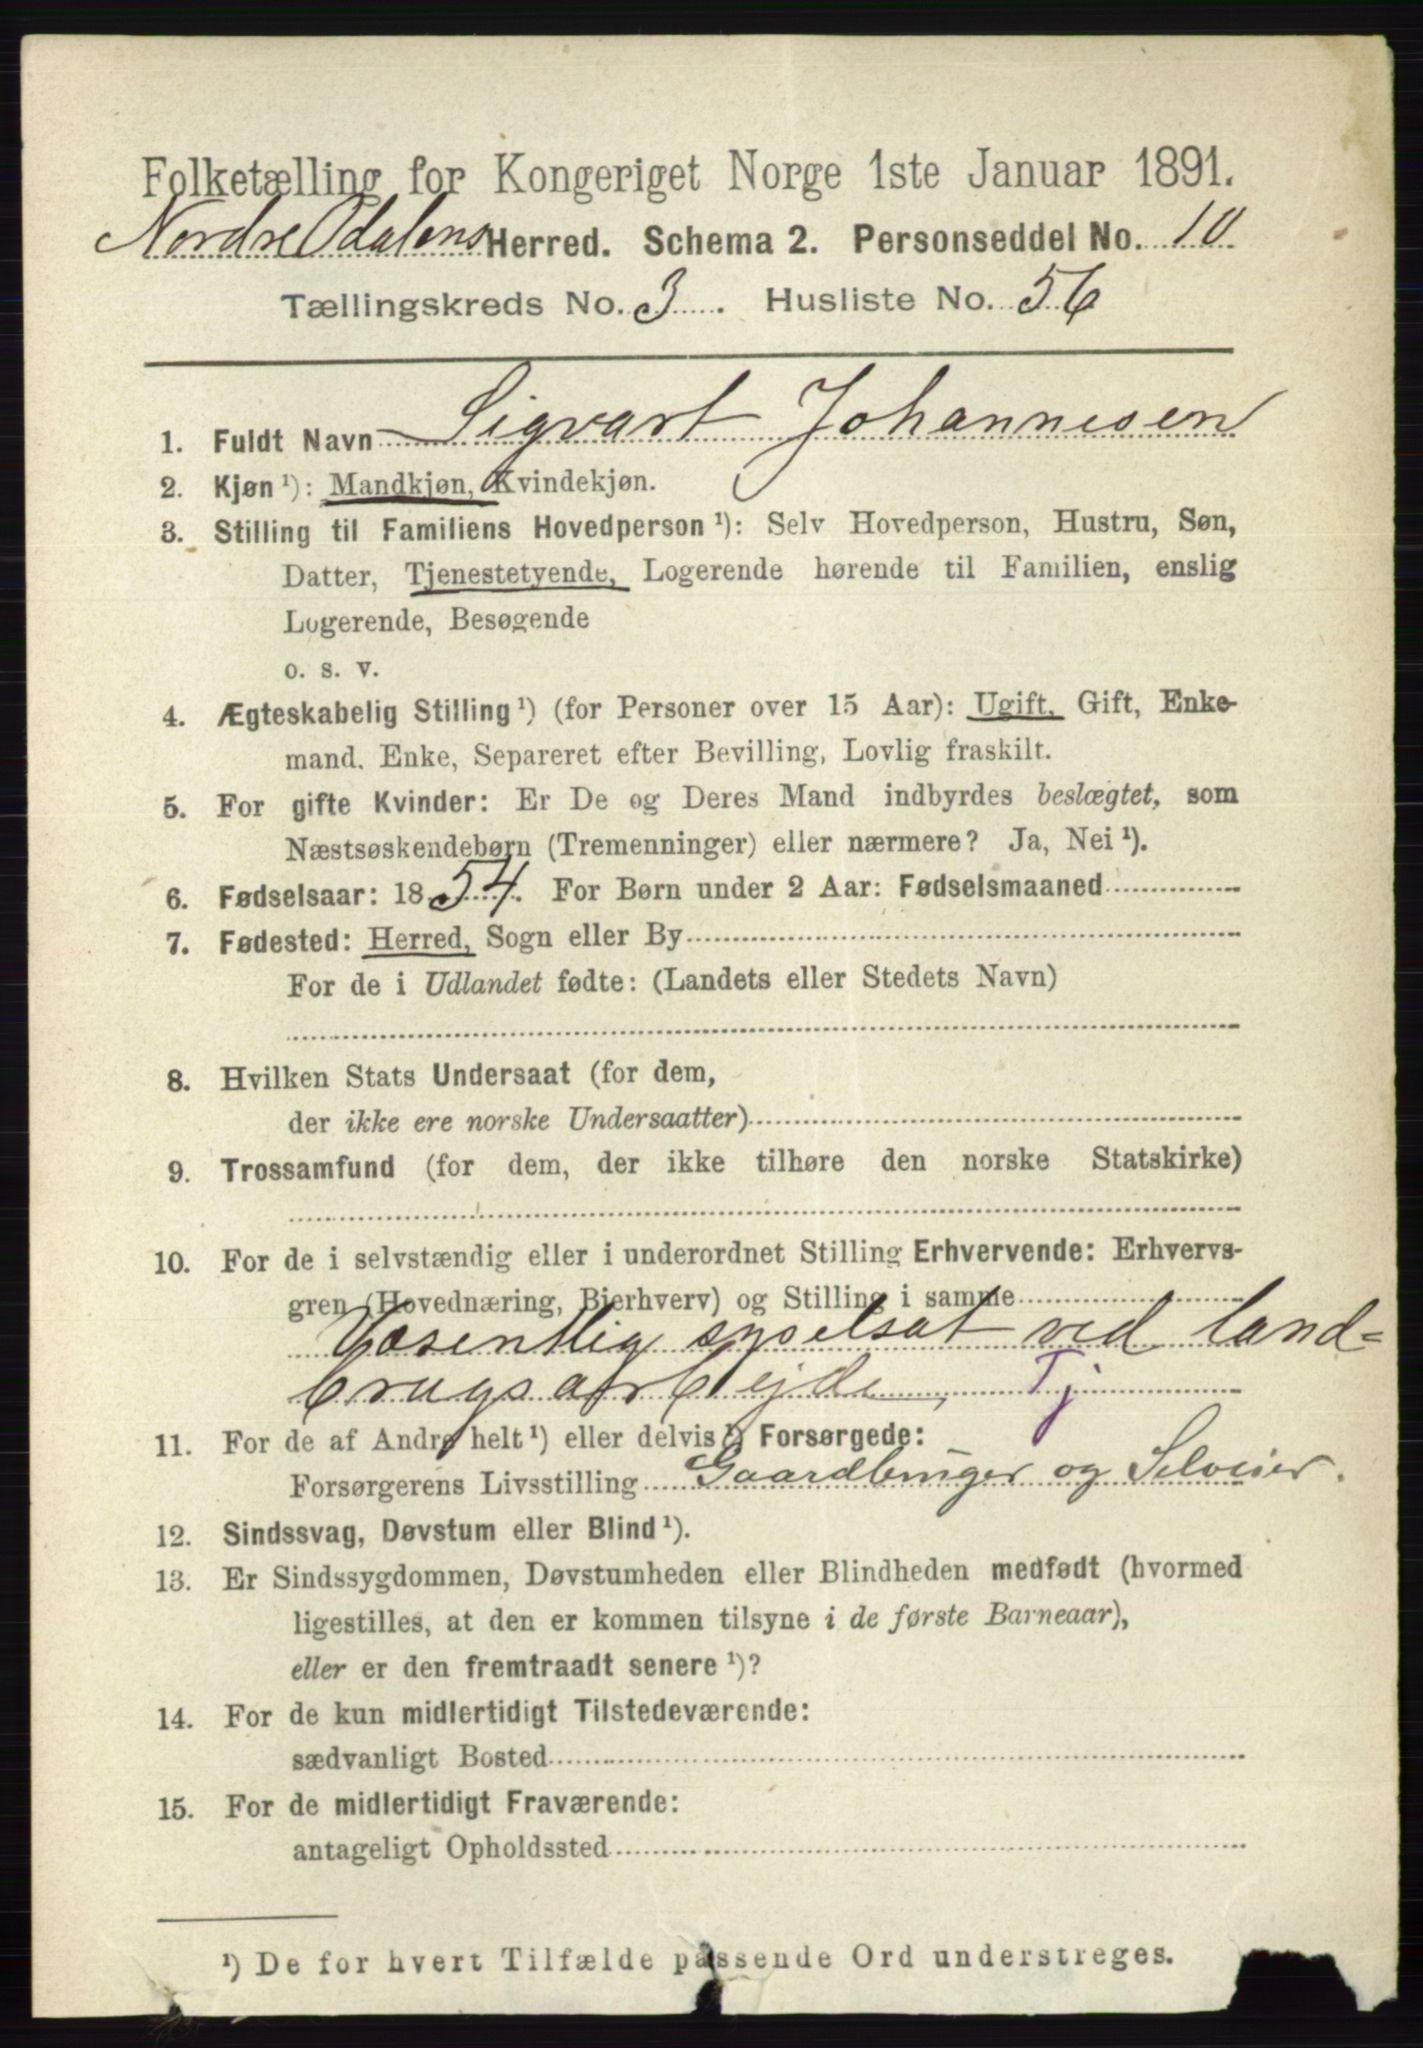 Folketælling for Kongeriget Norge 1ste Januar 1891.
Nordre Odalens Herred. Schema 2. Personseddel No. 10
Tællingskreds No. 3. Husliste No. 56
1. Fuldt Navn Sigvart Johannesen
2. Kjøn ¹): Mandkjøn, Kvindekjøn.
3. Stilling til Familiens Hovedperson ¹): Selv Hovedperson, Hustru, Søn,
Datter, Tjenestetyende, Logerende hørende til Familien, enslig
Logerende, Besøgende
o. s. v.
4. Ægteskabelig Stilling ¹) (for Personer over 15 Aar): Ugift, Gift, Enke-
mand, Enke, Separeret efter Bevilling, Lovlig fraskilt.
5. For gifte Kvinder: Er De og Deres Mand indbyrdes beslægtet, som
Næstsøskendebørn (Tremenninger) eller nærmere? Ja, Nei ¹).
6. Fødselsaar: 1854. For Børn under 2 Aar: Fødselsmaaned
7. Fødested: Herred, Sogn eller By
For de i Udlandet fødte: (Landets eller Stedets Navn)
8. Hvilken Stats Undersaat (for dem,
der ikke ere norske Undersaatter)
9. Trossamfund (for dem, der ikke tilhøre den norske Statskirke)
10. For de i selvstændig eller i underordnet Stilling Erhvervende: Erhvervs-
gren (Hovednæring, Bierhverv) og Stilling i samme
Væsentlig syselsat ved land=
brugsarbejde, Tj
11. For de af Andre helt ¹) eller delvis ¹) Forsørgede:
Forsørgerens Livsstilling Gaardbruger og Selveier.
12. Sindssvag, Døvstum eller Blind ¹).
13. Er Sindssygdommen, Døvstumheden eller Blindheden medfødt (hvormed
ligestilles, at den er kommen tilsyne i de første Barneaar),
eller er den fremtraadt senere ¹)?
14. For de kun midlertidigt Tilstedeværende:
sædvanligt Bosted
15. For de midlertidigt Fraværende:
antageligt Opholdssted
¹) De for hvert Tilfælde passende Ord understreges.